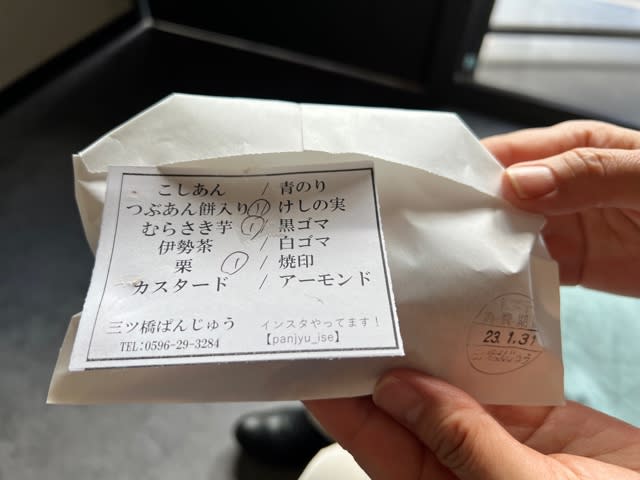 こしあん / 青のり
つぶあん餅入り 1 / けしの実
むらさき芋 1 / 黒ゴマ
伊勢茶 / 白ゴマ
栗 1 / 焼印
カスタード / アーモンド
三ツ橋ぱんじゅう
インスタやってます!
TEL:0596-29-3284
【panjyu_ise】
消費期限
23.1.31